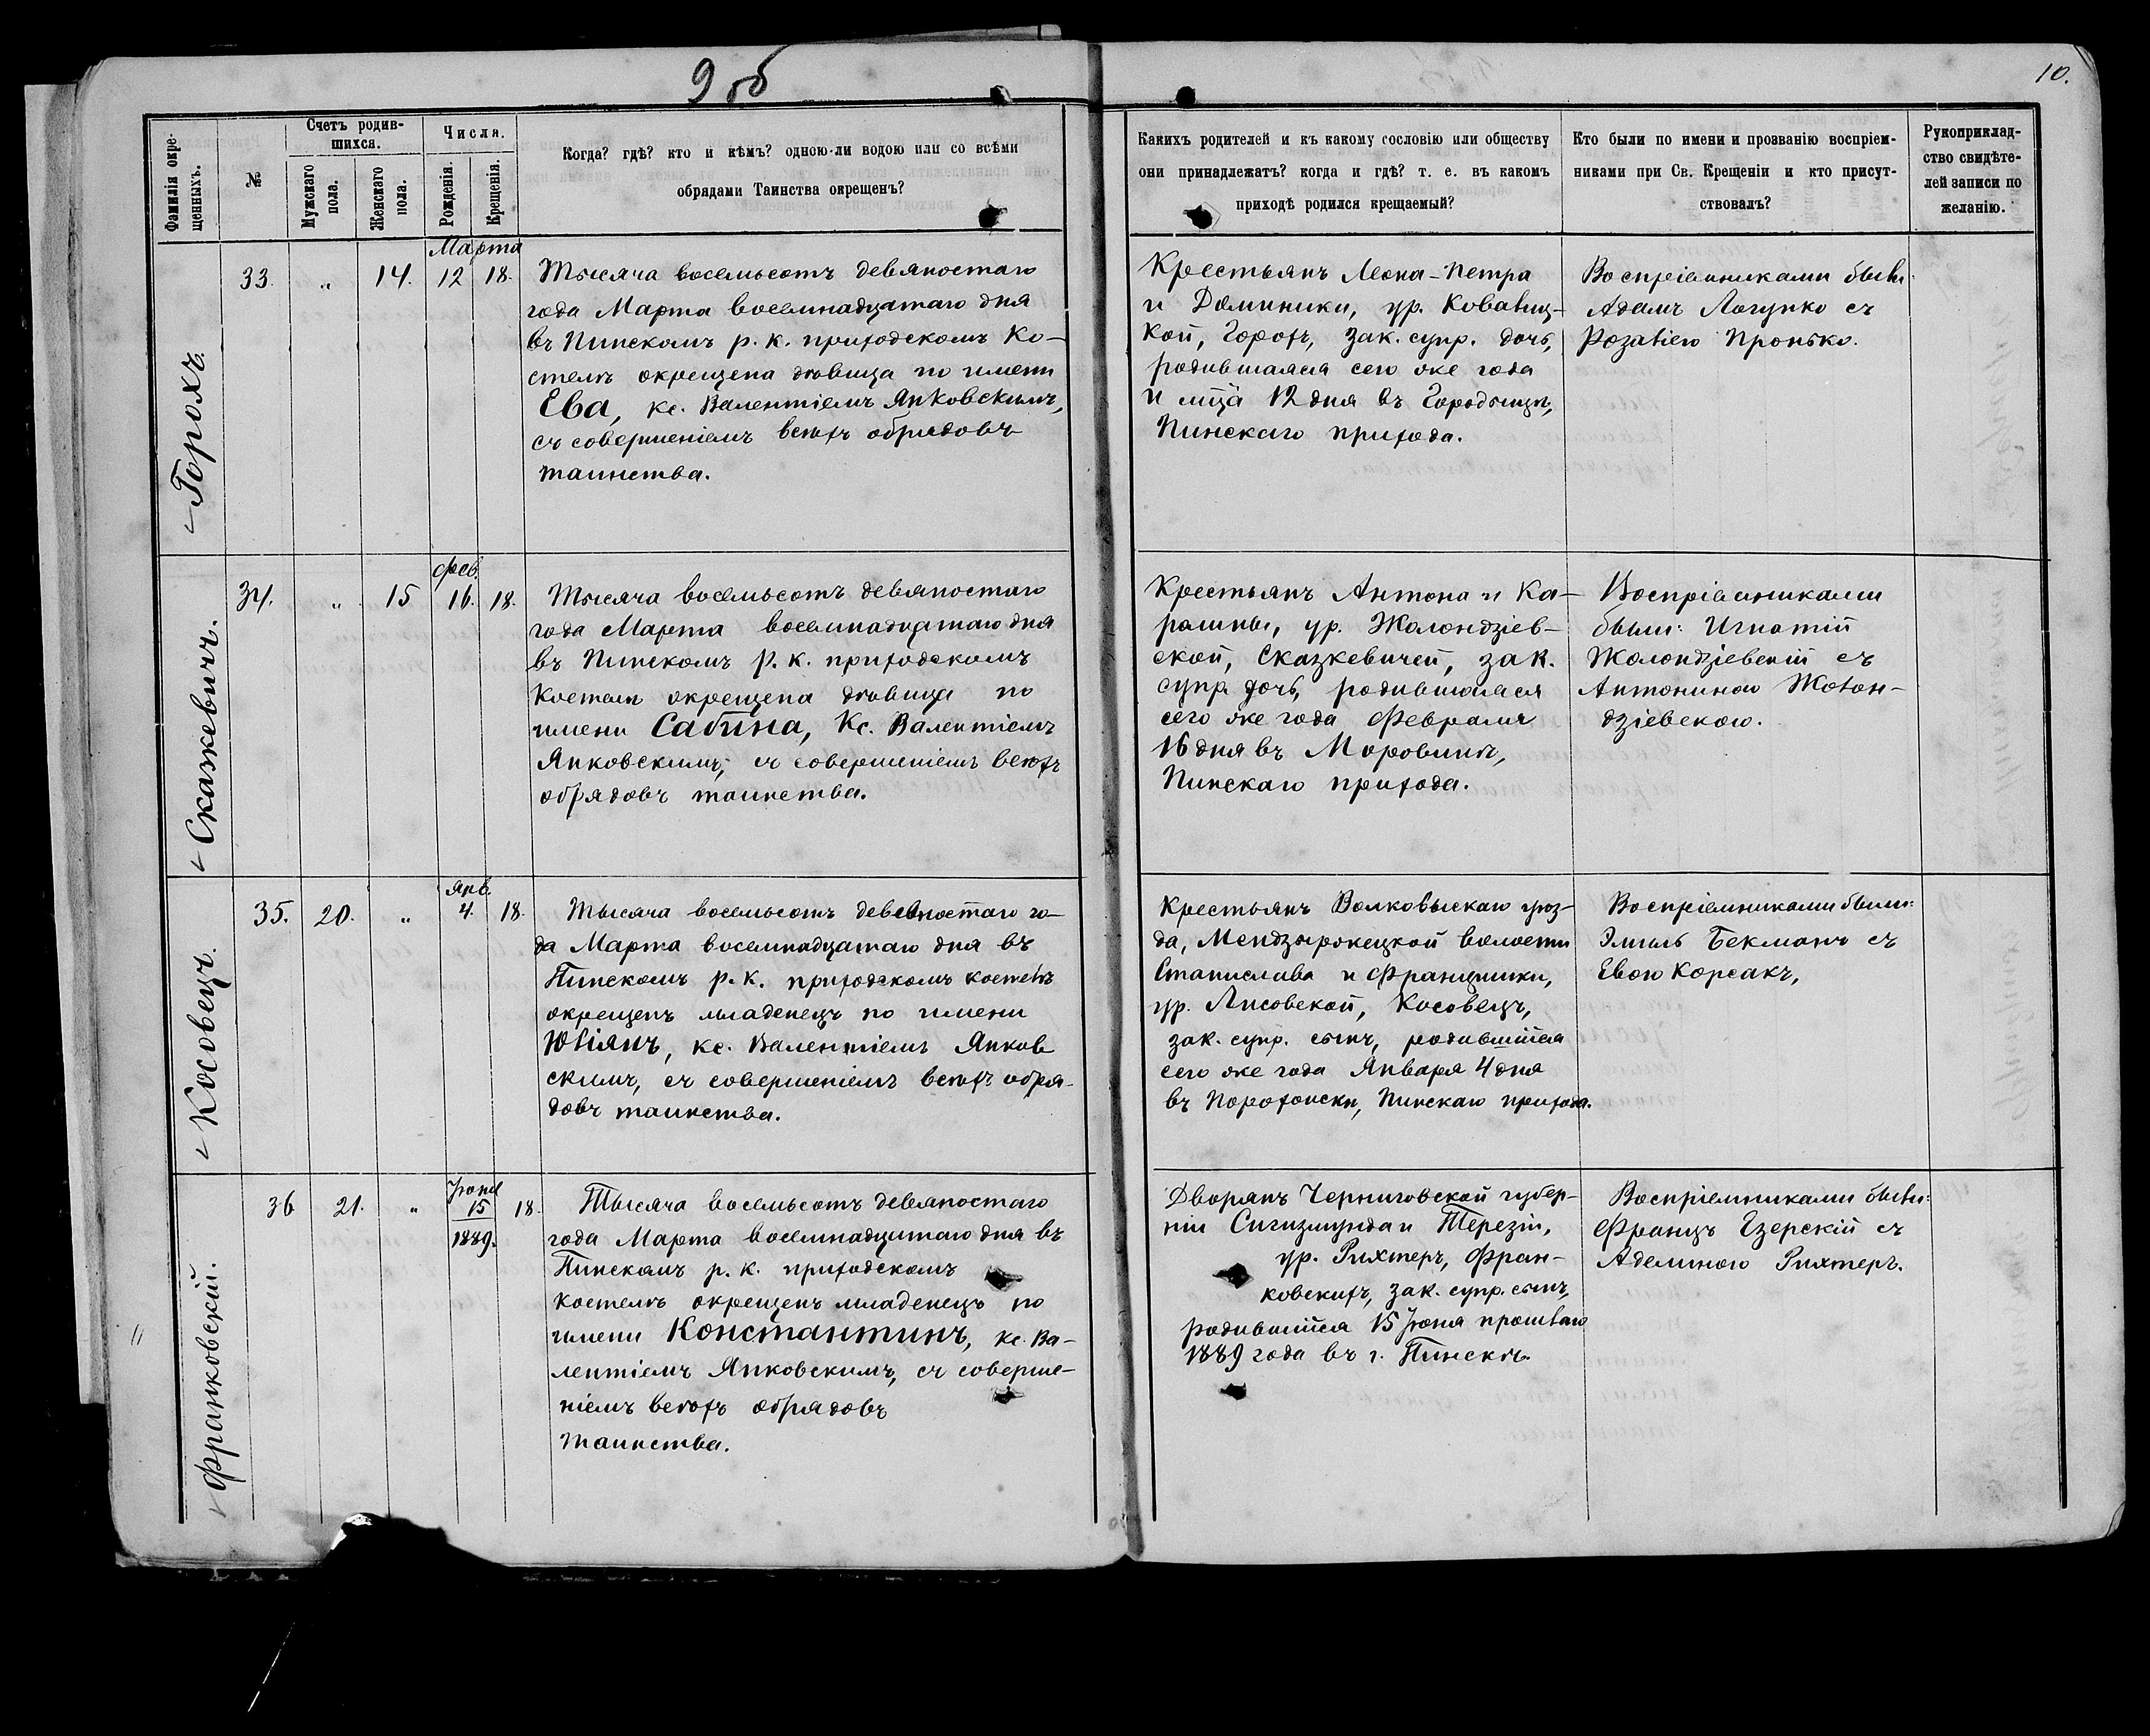 9 об
10.
Фамилія окре-
щенныхъ.
№
Счетъ родив-
шихся.
Мужскаго
пола.
Женскаго
пола.
Числа.
Рожденія.
Крещенія.
Когда? гдѣ? кто и кѣмъ? одною-ли водою или со всѣми
обрядами Таинства окрещенъ?
Какихъ родителей и къ какому сословію или обществу
они принадлежатъ? когда и гдѣ? т. е. въ какомъ
приходѣ родился крещаемый?
Кто были по имени и прозванію воспріем-
никами при Св. Крещеніи и кто присут-
ствовалъ?
Рукоприклад-
ство свидѣте-
лей записи по
желанію.
Горохъ.
33. " 14.
Марта
12 18.
Тысяча восемьсотъ девяностаго
года Марта восемнадцатаго дня
въ Пинскомъ р. к. приходскомъ Ко-
стелѣ окрещена дѣвица по имени
Ева, кс. Валентіемъ Янковскимъ,
съ совершеніемъ всѣхъ обрядовъ
таинства.
Крестьянъ Леона-Петра
и Доминики, ур. Ковалиц-
кой, Горохъ, зак. супр. дочь,
родившаяся сего же года
и мца 12 дня въ Городищѣ,
Пинскаго прихода.
Воспріемниками были:
Адамъ Логунко съ
Розаліею Пронько.
Скажевичъ.
34. " 15
фев.
16. 18.
Тысяча восемьсотъ девяностаго
года Марта восемнадцатаго дня
въ Пинскомъ р. к. приходскомъ
Костелѣ окрещена дѣвица по
имени Сабина, Кс. Валентіемъ
Янковскимъ, съ совершеніемъ всѣхъ
обрядовъ таинства.
Крестьянъ Антона и Ка-
ролины, ур. Жолондзіев-
ской, Сказкевичей, зак.
супр. дочь, родившаяся
сего же года Февраля
16 дня въ Моровинѣ,
Пинскаго прихода.
Воспріемниками
были: Игнатій
Жолондзіевскій съ
Антониною Жолон-
дзіевскою.
Косовецъ.
35. 20. "
янв.
4. 18.
Тысяча восемьсотъ девяностаго го-
да Марта восемнадцатаго дня въ
Пинскомъ р. к. приходскомъ костелѣ
окрещенъ младенецъ по имени
Юліянъ, кс. Валентіемъ Янков
скимъ, съ совершеніемъ всѣхъ обря-
довъ таинства.
Крестьянъ Волковыскаго уѣз-
да, Мендзыржецкой волости
Станислава и Францишки,
ур. Лисовской, Косовецъ,
зак. супр. сынъ, родившійся
сего же года Января 4 дня
въ Порохонскѣ, Пинскаго прихода.
Воспріемниками были:
Эмиль Бекманъ съ
Евою Корсакъ,
Франковскій.
36 21. "
Іюня
15
1889.
18.
Тысяча восемьсотъ девяностаго
года Марта восемнадцатаго дня въ
Пинскомъ р. к. приходскомъ
костелѣ окрещенъ младенецъ по
имени Константинъ, кс. Ва-
лентіемъ Янковскимъ, съ соверше-
ніемъ всѣхъ обрядовъ
таинства.
Дворянъ Черниговской губер-
ніи Сигизмунда и Терезіи,
ур. Рихтеръ, Фран-
ковскихъ, зак. супр. сынъ,
родившійся 15 Іюня прошлаго
1889 года въ г. Пинскѣ.
Воспріемниками были:
Францъ Езерскій съ
Аделиною Рихтеръ.